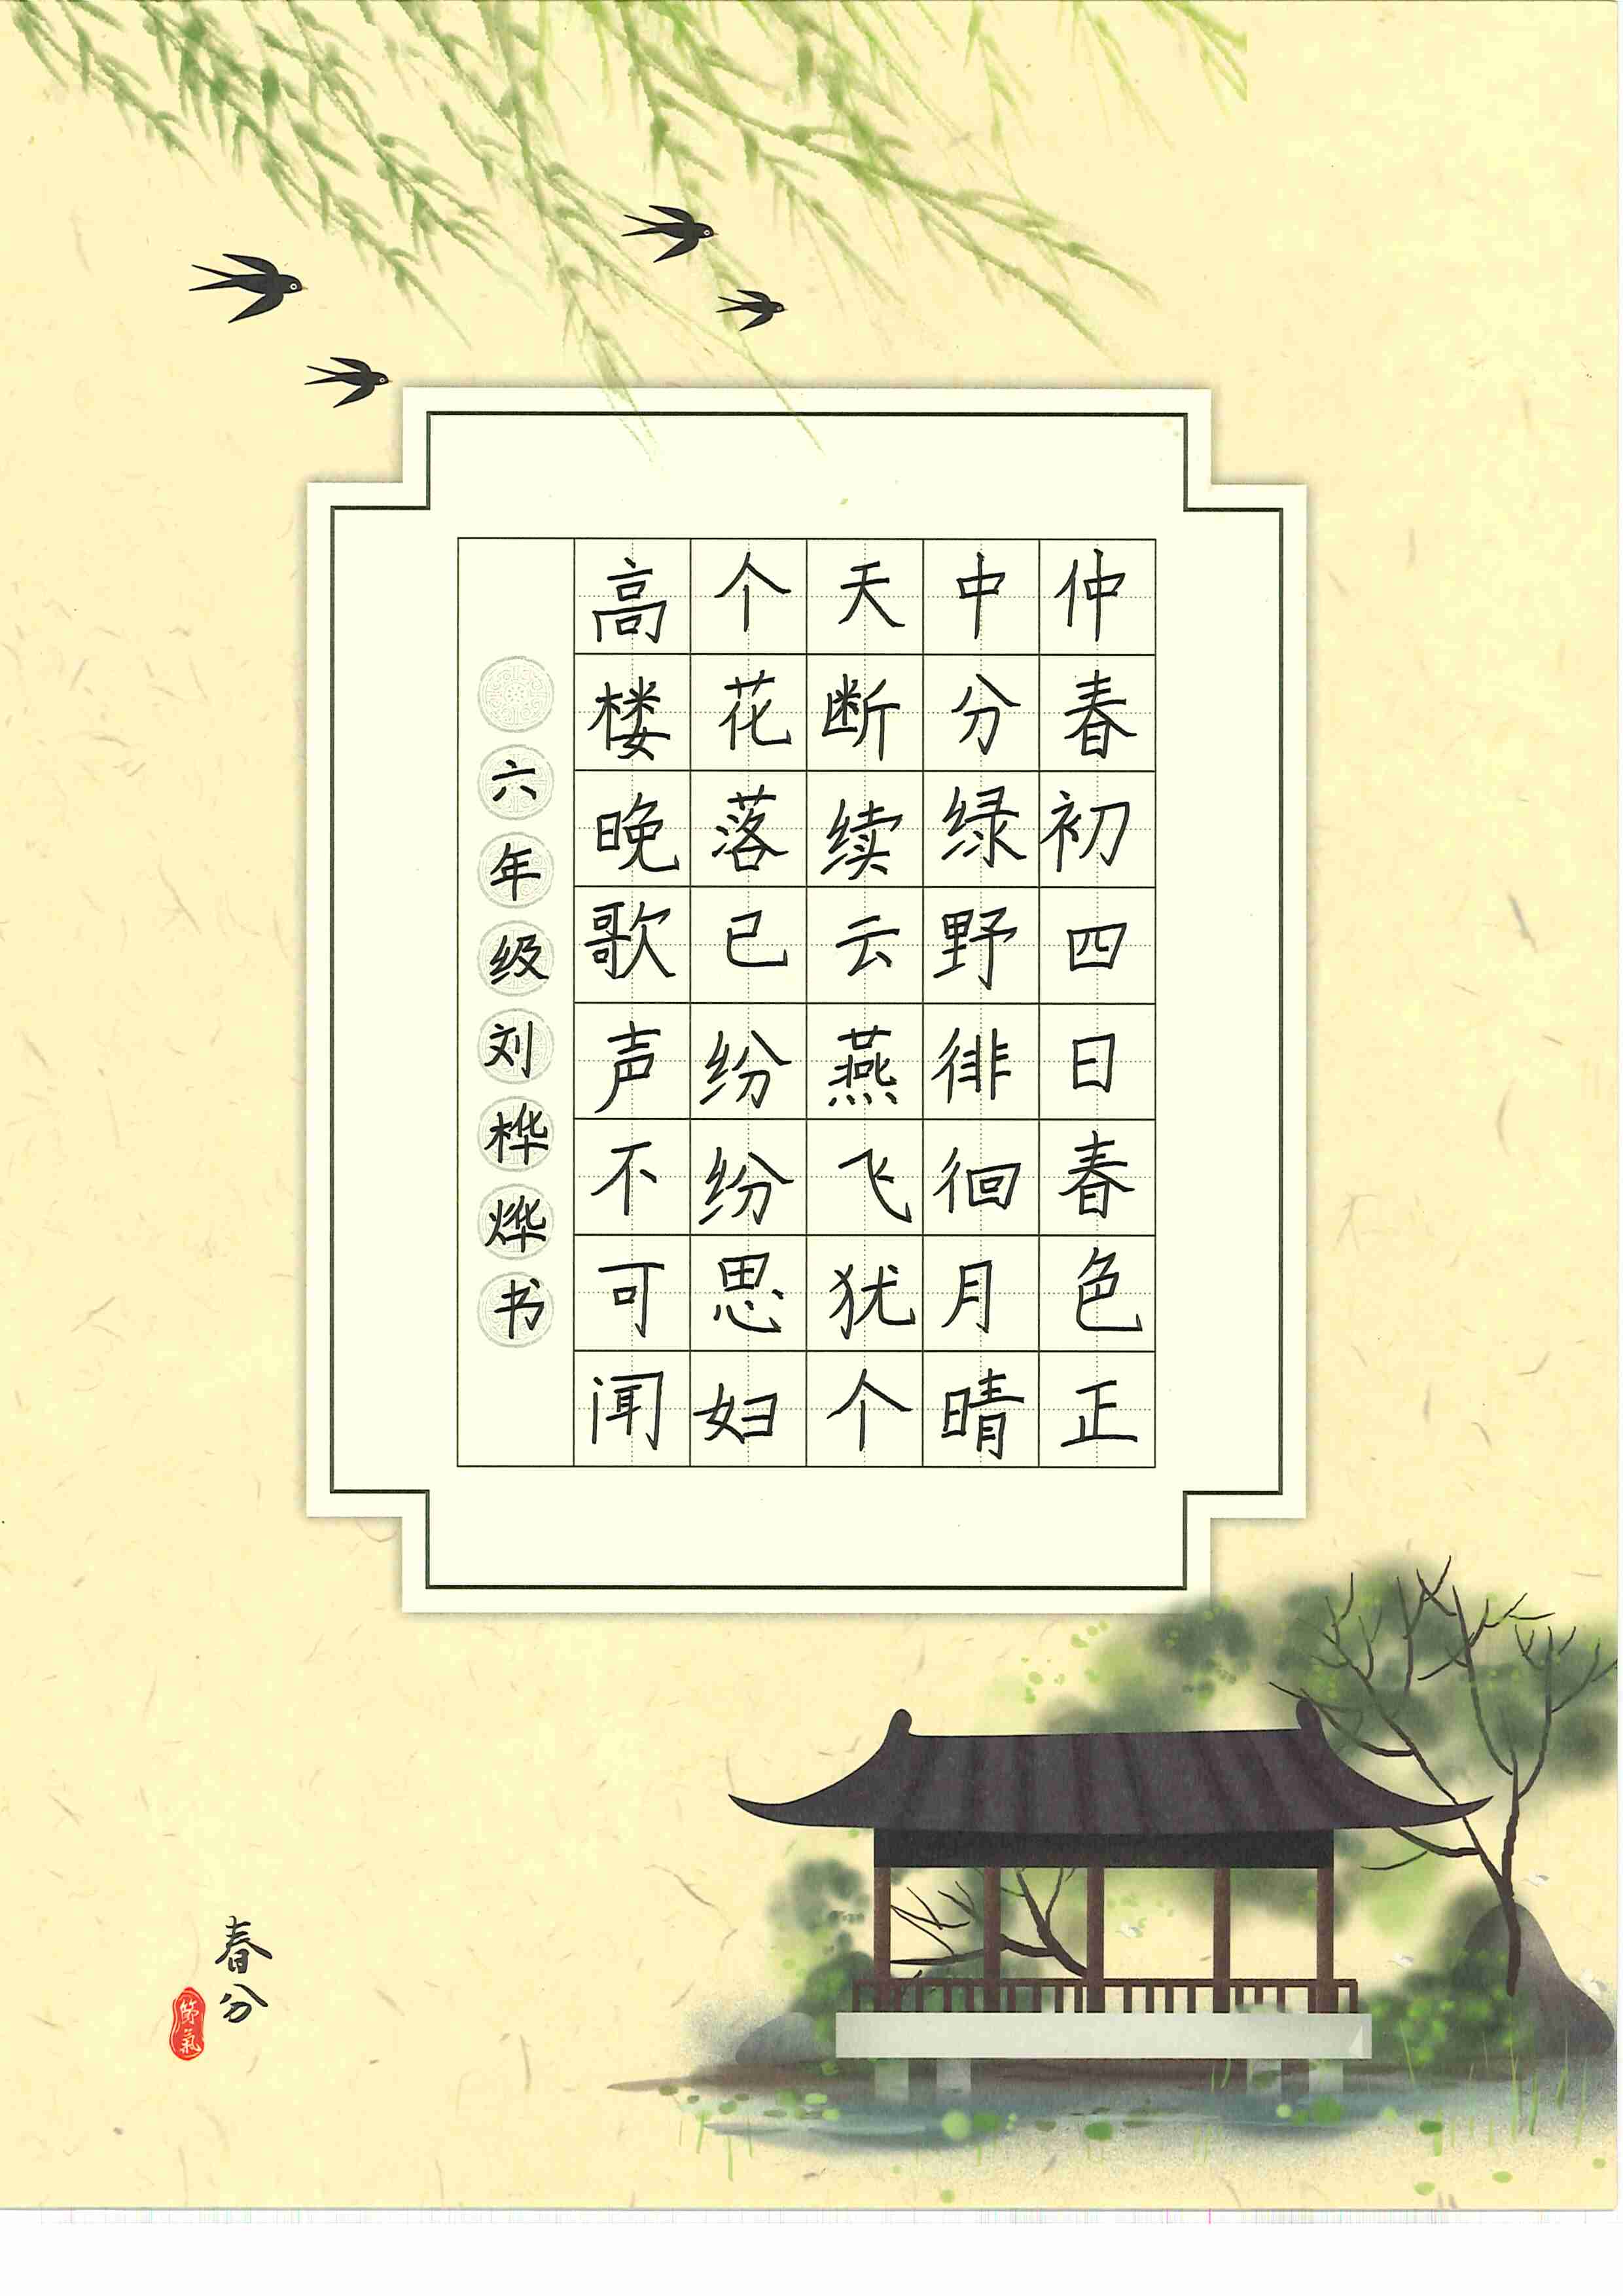 仲春初四日春色正
中分绿野徘徊月晴
天断续云燕飞犹个
个花落已纷纷思妇
高楼晚歌声不可闻
六年级刘桦烨书
春分
節氣